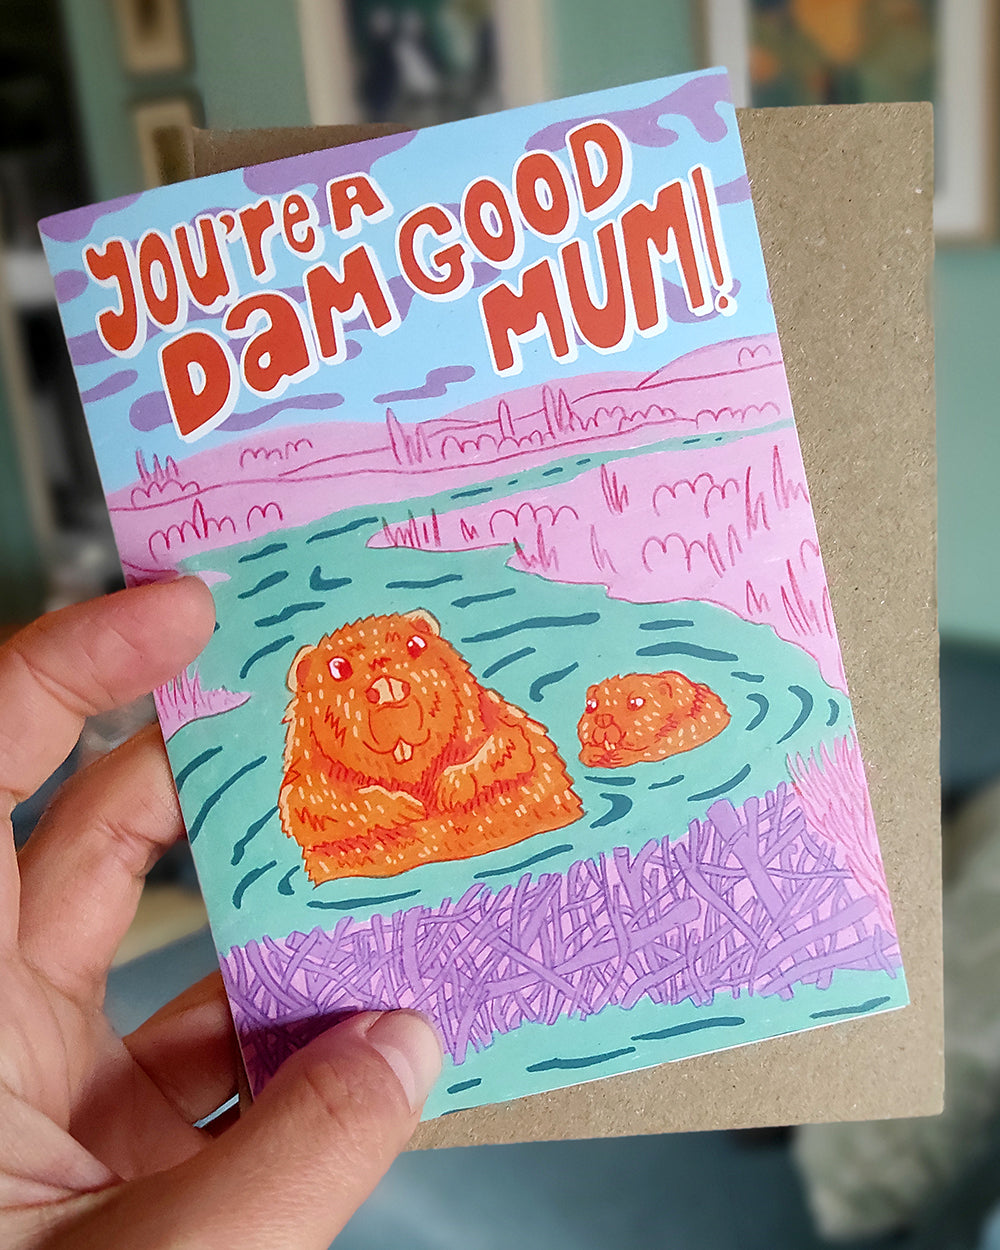 YOU'Re A
DaM GOOD
MUM!